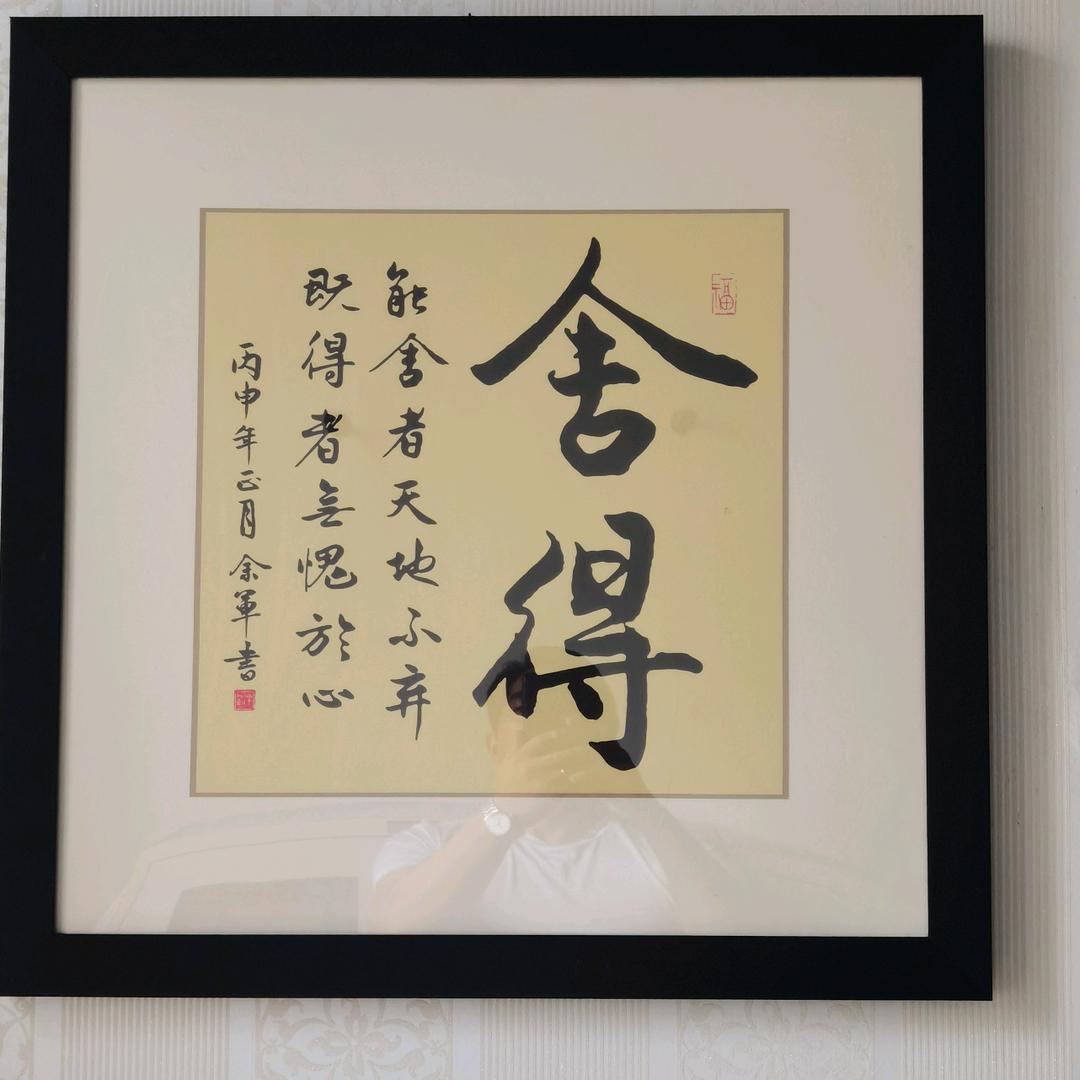 福
舍得
能舍者天地不弃
既得者無愧於心
丙申年正月余軍書